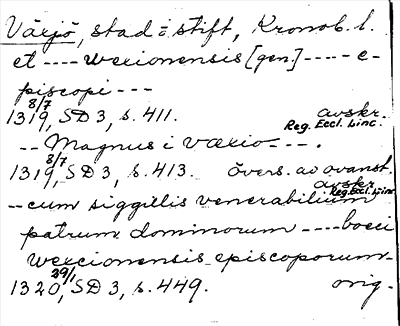 Växjö, stad o stift, Kronob. l.
et ---- wexionensis [gen.] ----- e-
piscopi ---
1319 8/7, SD 3, s. 411. avskr. Reg. Eccl. Linc.
-- Magnus i Væxio -- - .
1319 8/7, SD 3, s. 413. övers. av ovanst. avskr. Reg. Eccl. Linc
-- cum siggillis venerabilium
patrum dominorum ---- boeci
wexcionensis episcoporum -
1320 29/1, SD 3, s. 449. orig -